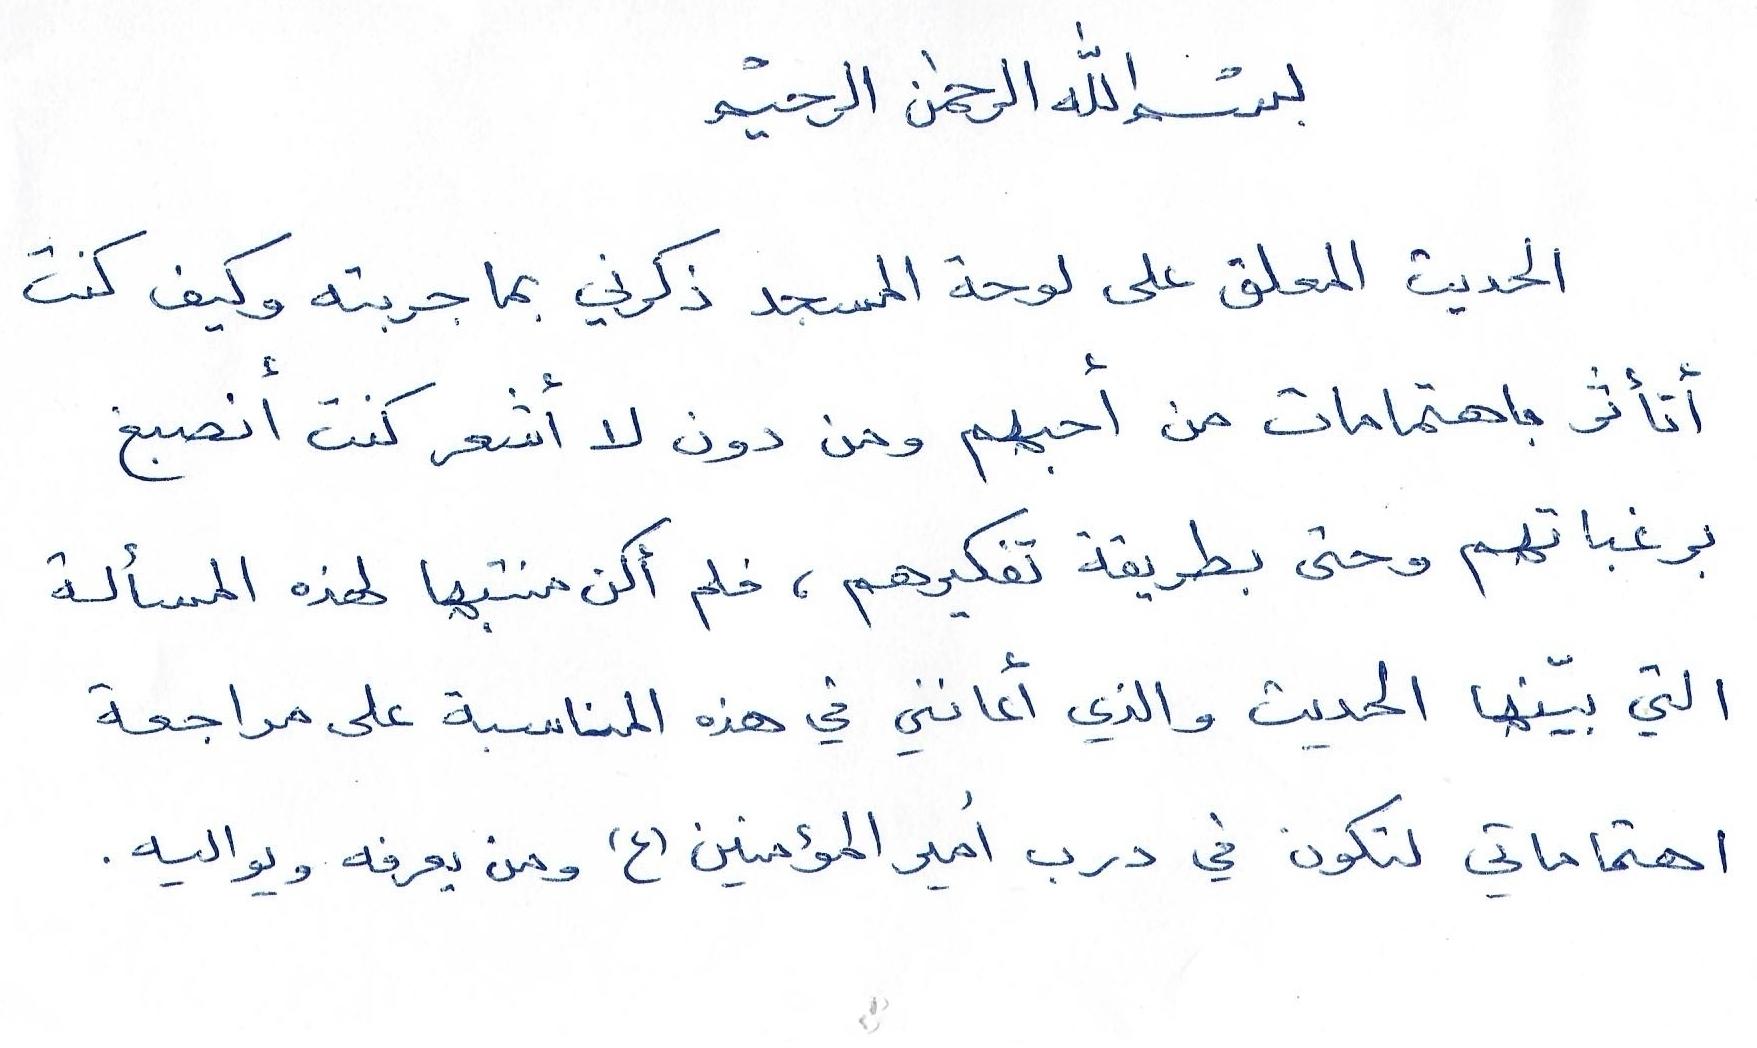 بسم الله الرحمٰن الرحيم
الحديث المعلق على لوحة المسجد ذكرني بما جربته وكيف كنت
أتأثر باهتمامات من أحبهم ومن دون لا أشعر كنت أنصبغ
برغباتهم وحتى بطريقة تفكيرهم ، فلم أكن منتبها لهذه المسألة
التي بيّنها الحديث والذي أعانني في هذه المناسبة على مراجعة
اهتماماتي لتكون في درب أمير المؤمنين (ع) ومن يعرفه ويواليه .